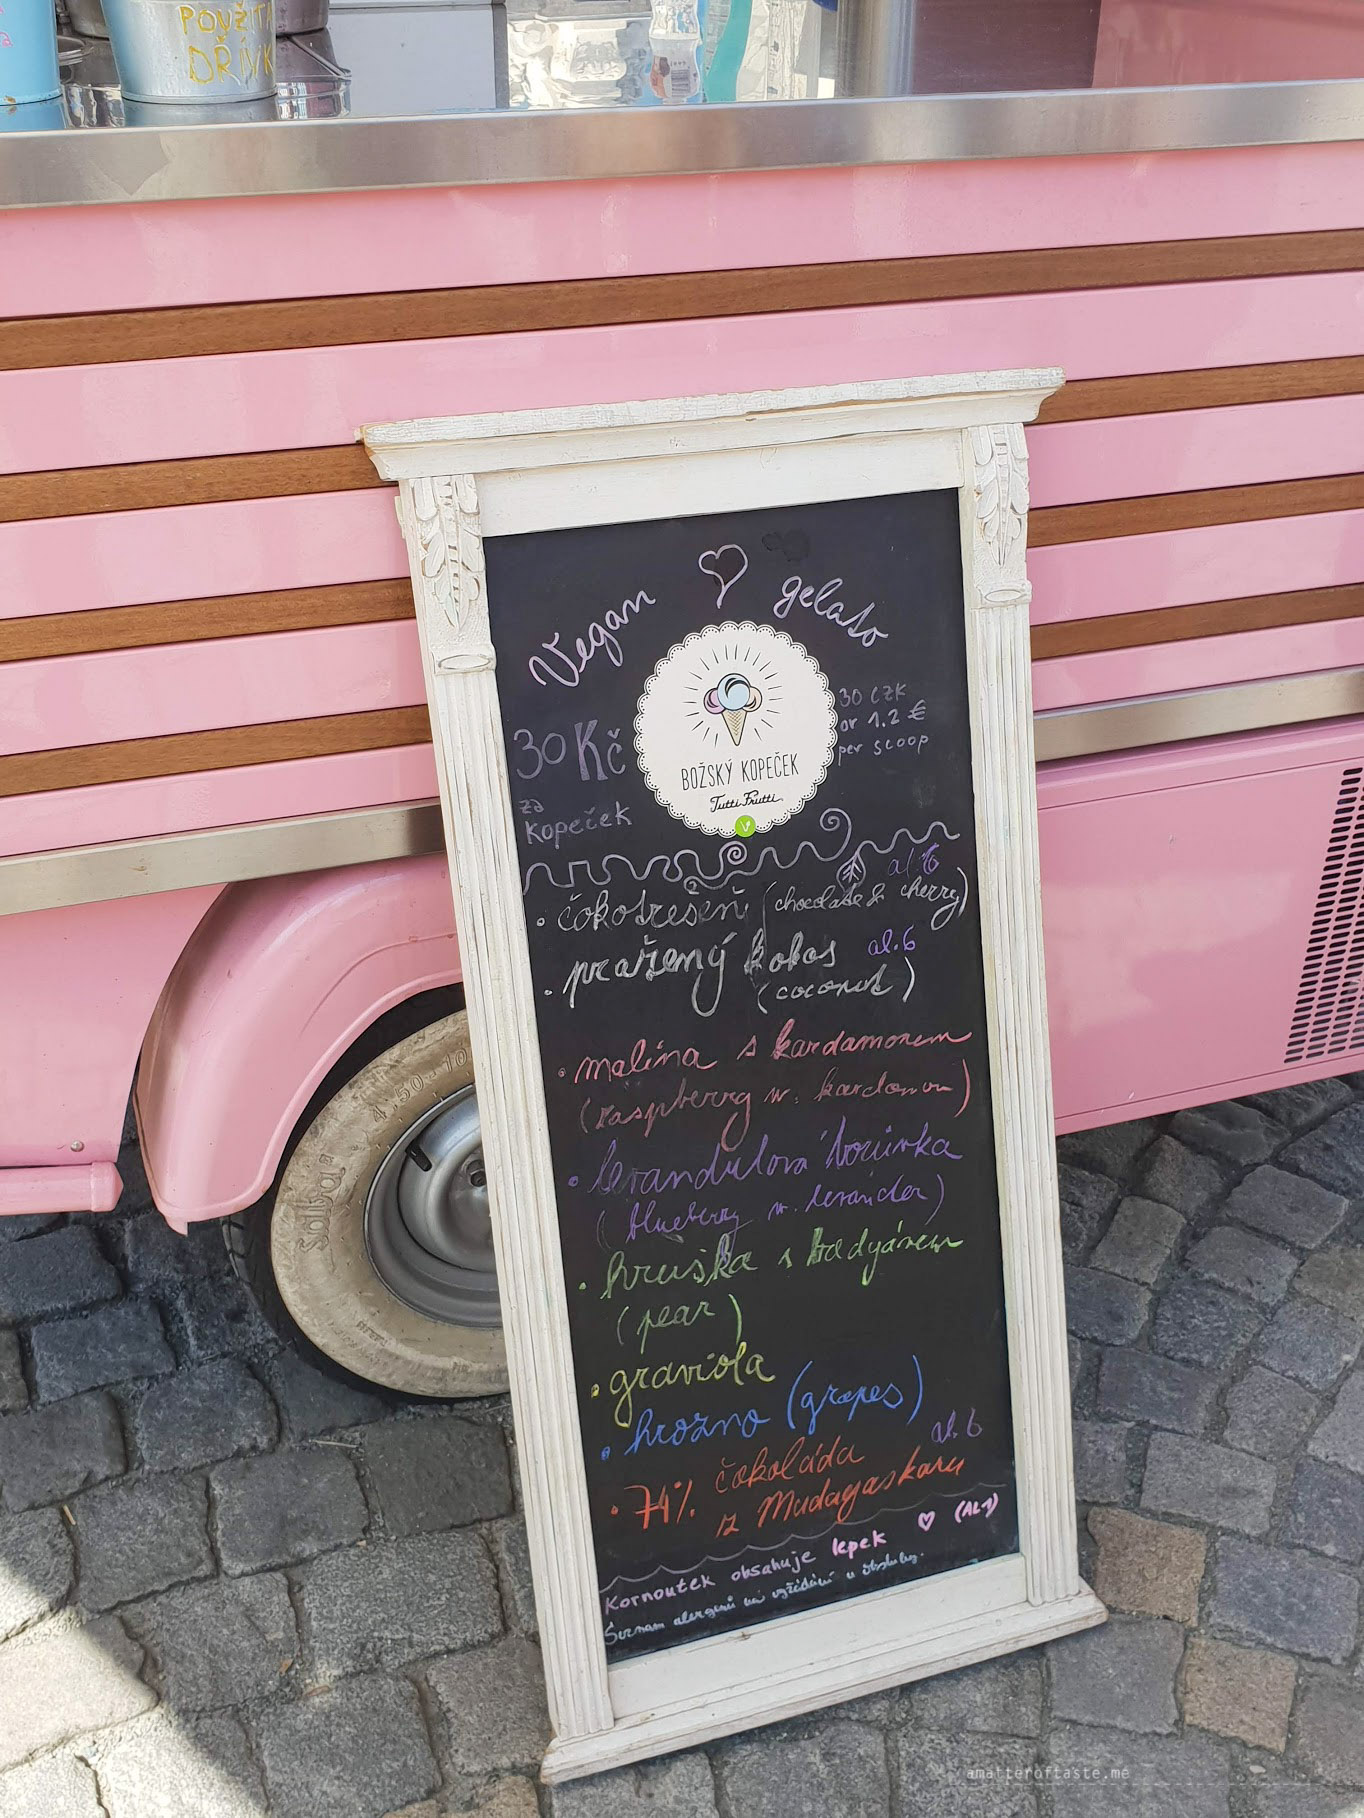 POUŽITÁ
DŘÍVK
Vegan gelato
30 Kč
za
kopeček
BOŽSKÝ KOPEČEK
Tutti Frutti
V
30 CZK
or 1.2 €
per scoop
al. 6
• čokotřešeň (chocolate & cherry)
• pražený kokos al. 6
(coconut)
• malina s kardamonem
(raspberry w. kardamon)
• levandulová borůvka
(blueberry w. levander)
• hruška s badyánem
(pear)
• graviola
• hrozno (grapes)
al. 6
• 74% čokoláda
iz Madagaskaru
Kornoutek obsahuje lepek (AL1)
Seznam alergenů na vyžádání u obsluhy.
4.50-10
Saiba
amatteroftaste.me